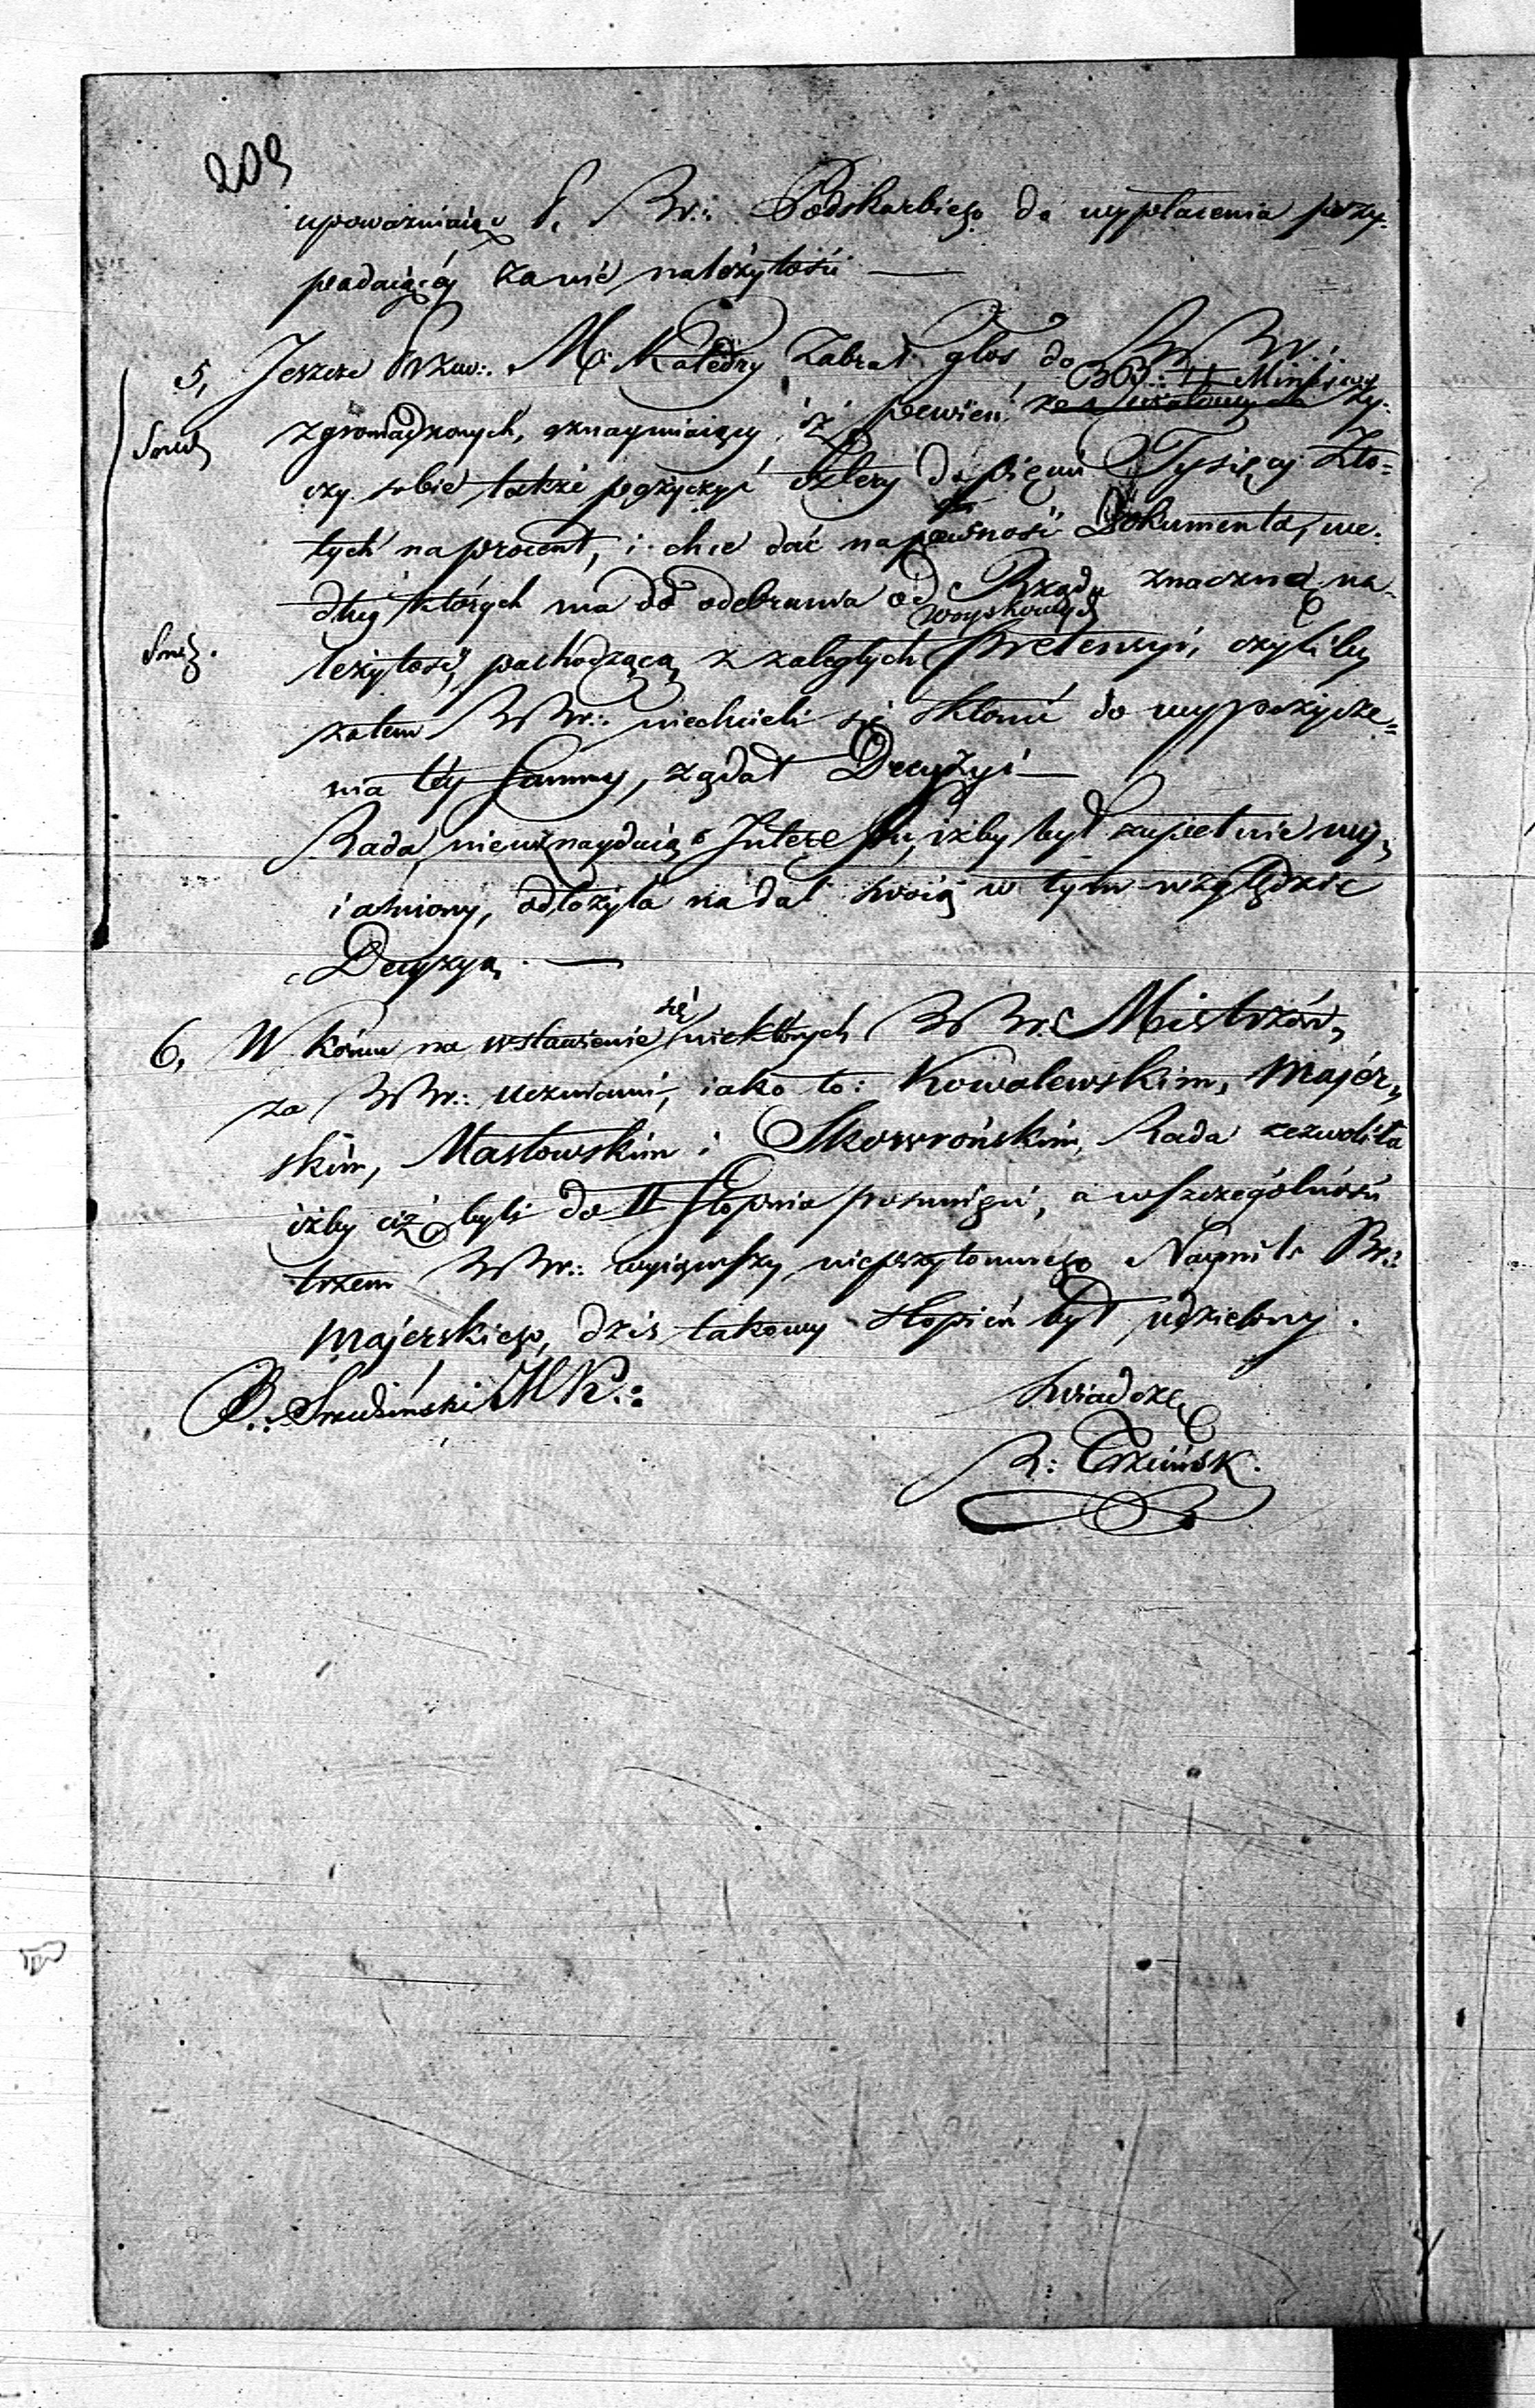 209
upoważniaiąc S. Br∴ Podskarbiego do wypłacenia przy-
padaiącéy za nié należytości —
5, Jeszcze Przew∴ M. Katedry zabrał głos do BBr∴
zgromadzonych, oznaymiaiący, iż pewien ży-
czy sobie także pożyczyć cztery do pięciu Tysięcy Zło=
tych na procent, i chce dać na pewność Dokumenta, we-
dług których ma do odebrania od Rządu znaczną na-
woyskowych
leżytość, pochodzącą z zaległych pretensyi, czyliby
zatem BBr∴ niechcieli się skłonić do wypożycze=
nia téy Summy, żądał Decyzyi —
Rada, nieuznaydaiąc Interessu, iżby był zupełnie wy-
iaśniony, odłożyła nadal swoią w tym względzie
Decyzyą. —
6, W końcu na wstawienie się niektórych BBr∴ Mistrzów,
za BBr∴ uczniami, iako to: Kowalewskim, Majer-
skim, Masłowskim i Skowrońskim, Rada zezwoliła
iżby ciż byli do II Stopnia posunięci, a wszczególności
trzem BBr∴ wyiąwszy nieprzytomnego Br∴
Majerskiego, dziś takowy stopień był udzielony.
Świadczę